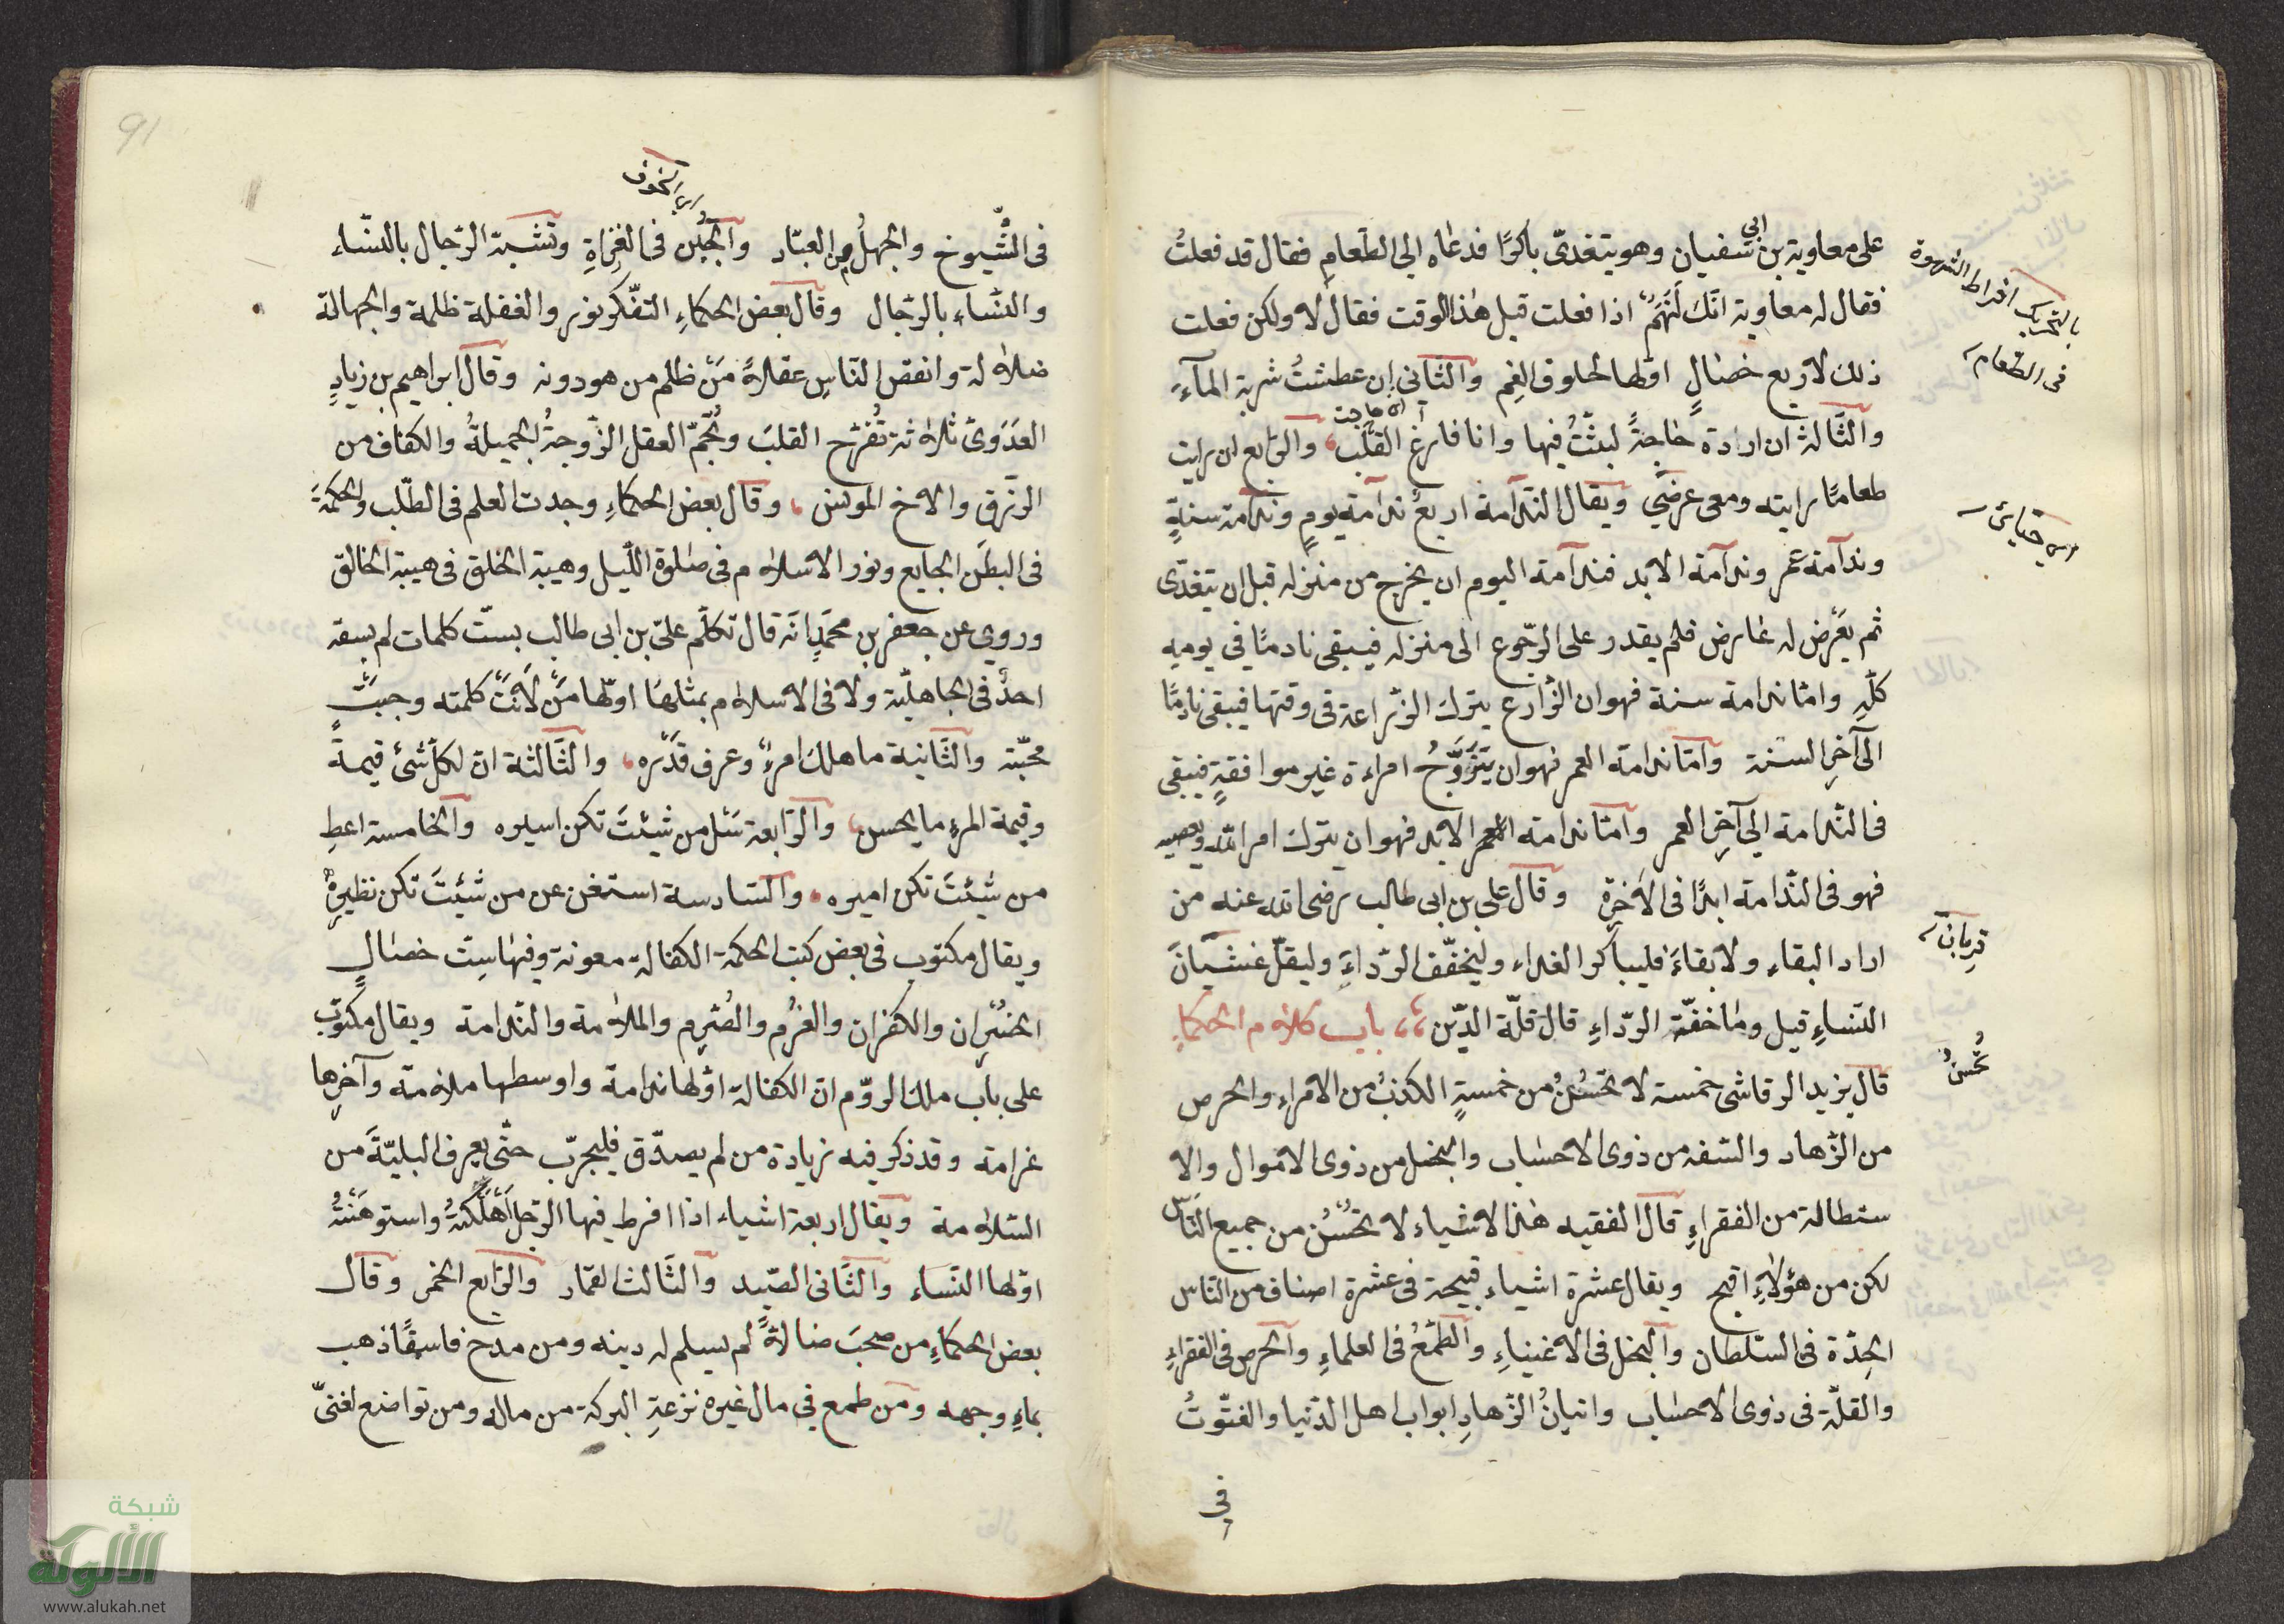 على معاوية بن ابي سفيان وهو يتغدىّ باكرًا فدعاه الي الطّعامِ فقال قد فعلتُ
فقال له معاوية انّك لَنَهِمٌ اذا فعلت قبل هذا الوقت فقال لا ولكن فعلت
ذلك لاربع خصالٍ اولها لخلوق الفم والثّانى ان عطشتُ شربة المآءَ
والثّالث ان ارادة حاجةً لبثتُ فيها وانا فارغ القلب والرّابع ان رايت
طعامًا رايته ومعى عرضي ويقال النّدامة اربع ندامة يوم وندامة سنةٍ
وندامة عمر وندامة الابد فندامة اليوم ان يخرج من منزله قبل ان يتغدّى
ثم يعرض له عارض فلم يقدر على الرّجوع الى منزله فيبقى نادمًا في يومه
كلّه وامّا ندامة سنة فهو ان الزّارع يترك الزّراعة في وقتها فيبقى نادمًا
الى آخرِ السنة وامّا ندامة العمر فهو ان يَتَزَوَّجُ امراءة غير موافقةٍ فيبقى
فى النّدامة الى آخر العمر وامّا ندامة الابد فهو ان يترك امر الله ويعصيه
فهو فى النّدامة ابدًا فى الآخرة وقال على بن ابى طالب رضى الله عنه من
اراد البقاء ولا بقاءَ فليباكر الغداء وليخفّف الرّداءَ وليقلّ غشيانَ
النّساءِ قيل وما خفّة الرّداءِ قال قلّة الدّين باب كلام الحكماءِ
قال يزيد الرقاشى خمسة لا تحْسُنُ من خمسةٍ الكذبُ من الامراءِ والحرص
من الزّهاد والسّفه من ذوى الاحساب والبخل من ذوى الاموال والا
ستطالة من الفقراءِ قال الفقيه هذا الاشياء لا تحْسُنُ من جميع النّاس
لكن من هؤلاءِ اقبح ويقال عشرة اشياء قبيحة فى عشرة اصناف من النّاس
الحِدّة فى السّلطان والبخل فى الاغنياءِ والطّمَعُ فى العلماءِ والحرص فى الفقراءِ
والقلّة فى ذوى الاحساب واتيانُ الزّهادِ ابواب اهل الدّنيا والفتّوتُ
فى
بالتحريك افراط الشهوة
فى الطّعام
قربان
تَحْسُنُ
91
اى الخوف
فى الشُّيوخ والجهلُ من العبّاد والجُبْن فى الغزاةِ وتشبّة الرّجال بالنّساء
والنّساء بالرّجال وقال بعض الحكماءِ التفّكر نور والغفلة ظلمة والجهالة
ضلالة وانقص النّاس عقلاً مَنْ ظلم من هو دونه وقال ابراهيم بن زيادٍ
العدَوىّ ثلاثة تُفرّح القلبَ وتُجمّ العقل الزّوجةُ الجميلةُ والكفاف من
الرّزق والاخ المونس وقال بعض الحكماءِ وجدت العلم فى الطّلب والحكمَةَ
فى البطن الجايع ونور الاسلام فى صلوة اللّيل وهيبة الخلق فى هيبة الخالق
وروي عن جعفر بن محمّدٍ انّه قال تكلّم علىّ بن ابى طالب بستّ كلمات لم يسبقه
احدٌ فى الجاهليّة ولا فى الاسلام بمثلها اوّلها مَنْ لاَنَتْ كلمته وجبتْ
محبّته والثّانية ما هلك امرءٌ وعرف قدْره والثّالثة انّ لكلّ شئ قيمةً
وقيمة المرءِ ما يحسن والرّابعة سَئل من شِيئتَ تكن اسيره والخامسة اعطِ
من شِيئتَ تكن اميره والسّادسة استغن عن من شيئتَ تكن نظيرهُ
ويقال مكتوب فى بعض كتب الحكمة الكفالة معونة وفيها ستّ خصالٍ
الخسْران والكفران والغرْم والصُّرم والملامة والنّدامة ويقال مكتوبٌ
على باب ملك الرّوم انّ الكفالة اوّلها ندامة واوسطها ملامة وآخرها
غرامة وقد ذكر فيه زيادة من لم يصدّق فليجرّب حتّى يعرف البليّةَ من
السّلامة ويقال اربعة اشياء اذا افرط فيها الرّجل اَهْلَكَتْهُ واستوهَنَتْهُ
اوّلها النّساء والثّانى الصّيد والثّالث القمار والرّابع الخمر وقال
بعض الحكماءِ من صحبَ ضالّاً لم يسلم له دينه ومن مدح فاسقًا ذهب
بماءِ وجهه ومن طمع في مال غيره نزعةِ البركة من ماله ومن تواضع لغنىّ
شبكة
الألوكة
www.alukah.net